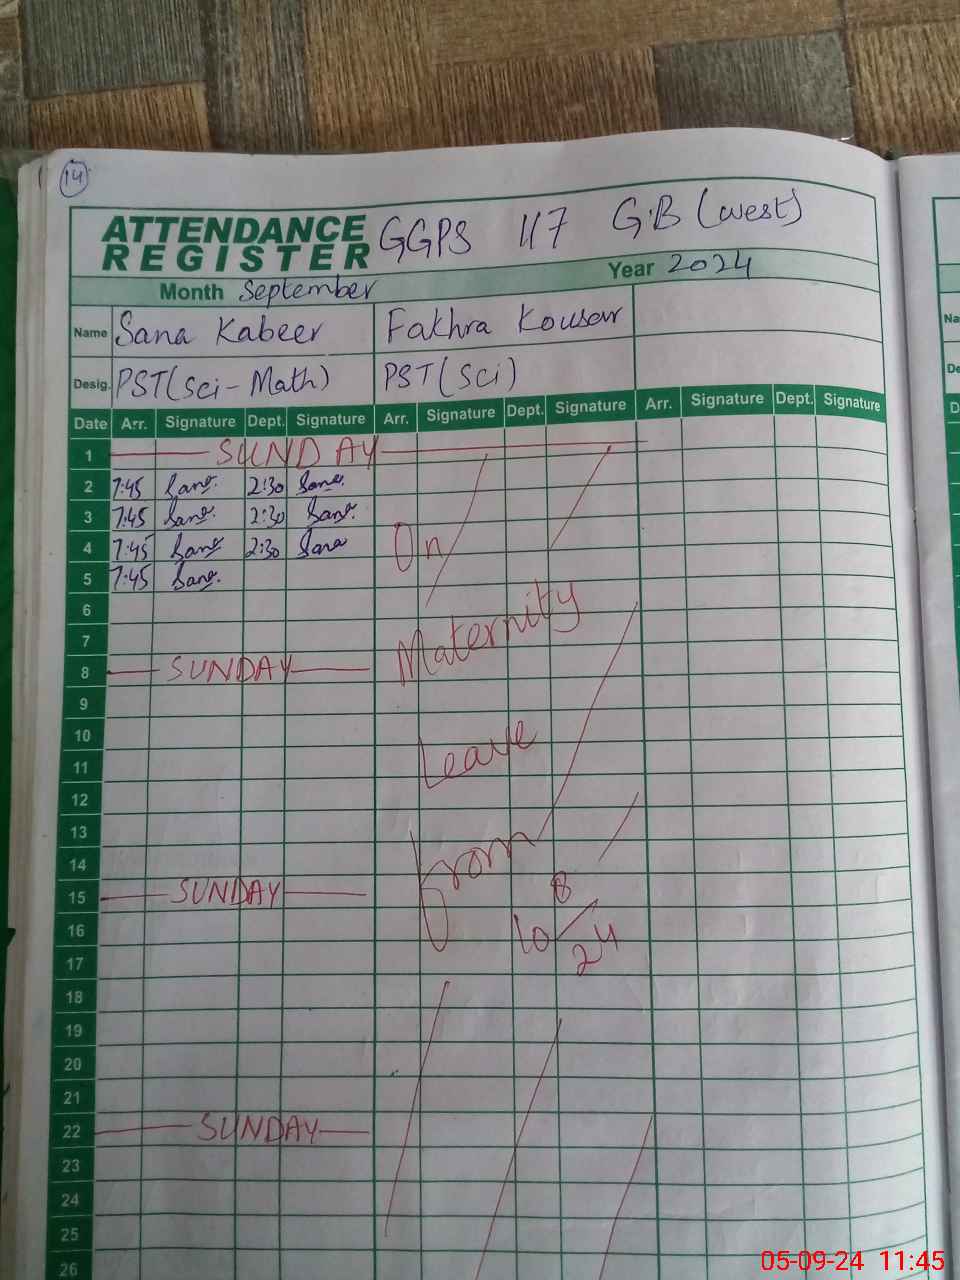 14
ATTENDANCE
REGISTER
GGPS 117 G.B (west)
Month September Year 2024
Name Sana Kabeer Fakhra Kousar
Desig. PST(Sci-Math) PST(Sci)
Date Arr. Signature Dept. Signature Arr. Signature Dept. Signature Arr. Signature Dept. Signature
1 SUNDAY
2 7:45 Sana. 2:30 Sana.
3 7:45 Sana. 2:30 Sana.
4 7:45 Sana 2:30 Sana On
5 7:45 Sana.
6 Maternity
7
8 SUNDAY
9
10 Leave
11
12
13
14 from
15 SUNDAY
16 10 8/24
17
18
19
20
21
22 SUNDAY
23
24
25
26
Na
De
D
05-09-24 11:45